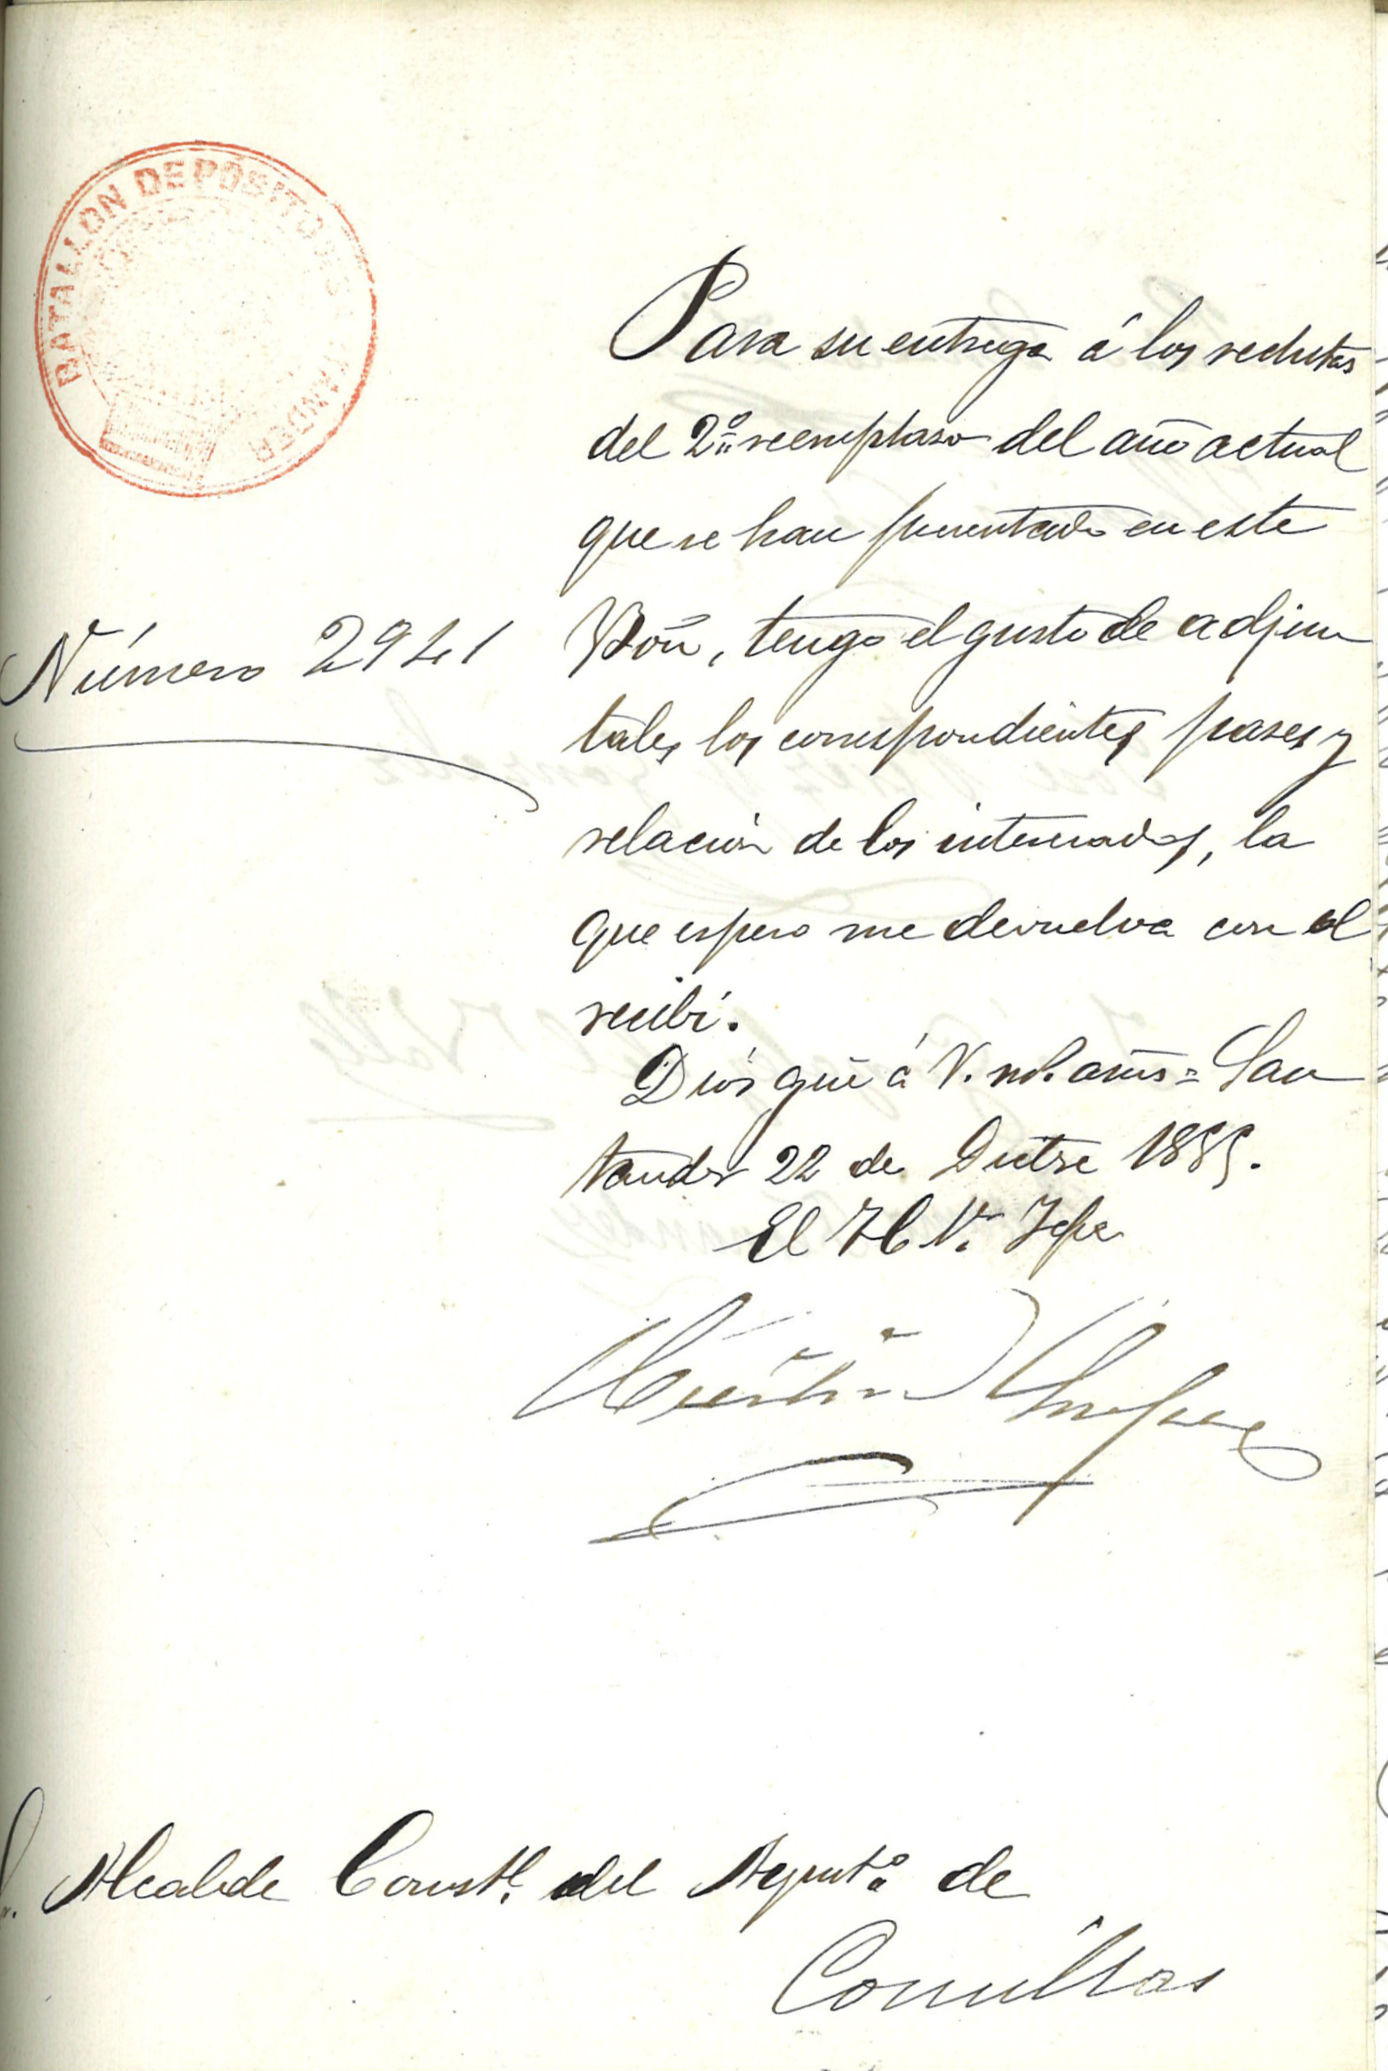 BATALLON DEPÓSITO DE SANTANDER
Para su entrega á los reclutas
del 2º reemplaso del año actual
que se han presentado en este
Bôn, tengo el gusto de adjun
Número 2941
tarles los correspondientes pases y
relación de los interesados, la
que espero me devuelva con el
recibí.
Dios gūe á V. m.s. años = San
tander 22 de Dictre 1885.
El T C Jefe
Alcalde Constl. del Ayuntº de
Comillas